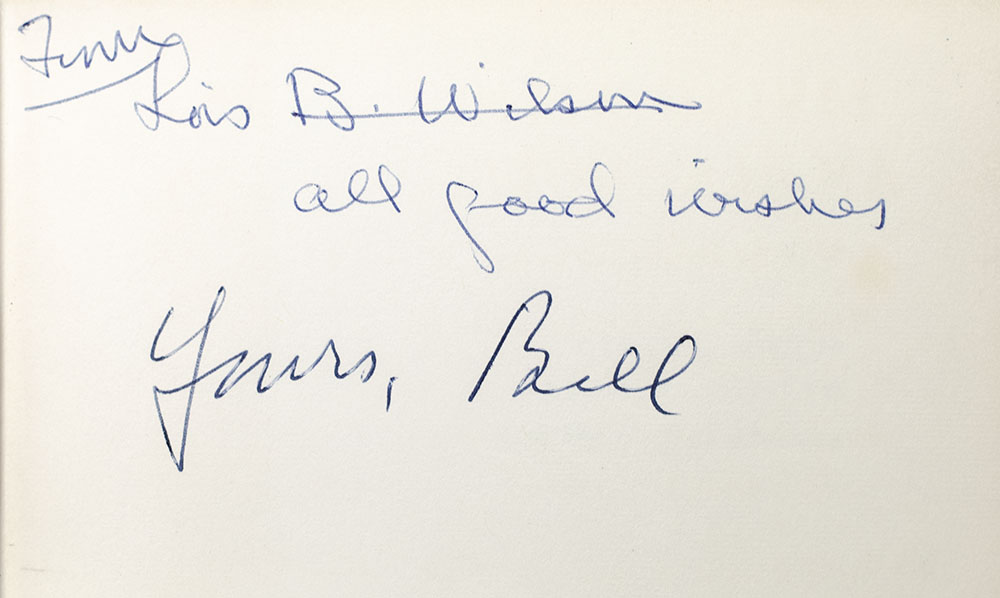 From
Lois B. Wilson
all good wishes
Yours, Bill